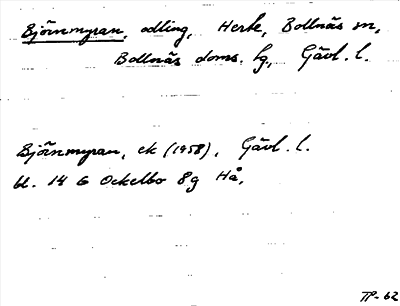 Björnmyran, odling, Herte, Bollnäs sn,
Bollnäs doms. hg, Gävl. l.
Björnmyran, ek (1958), Gävl. l.
bl. 14 G Ockelbo 8g Hå,
TP-62